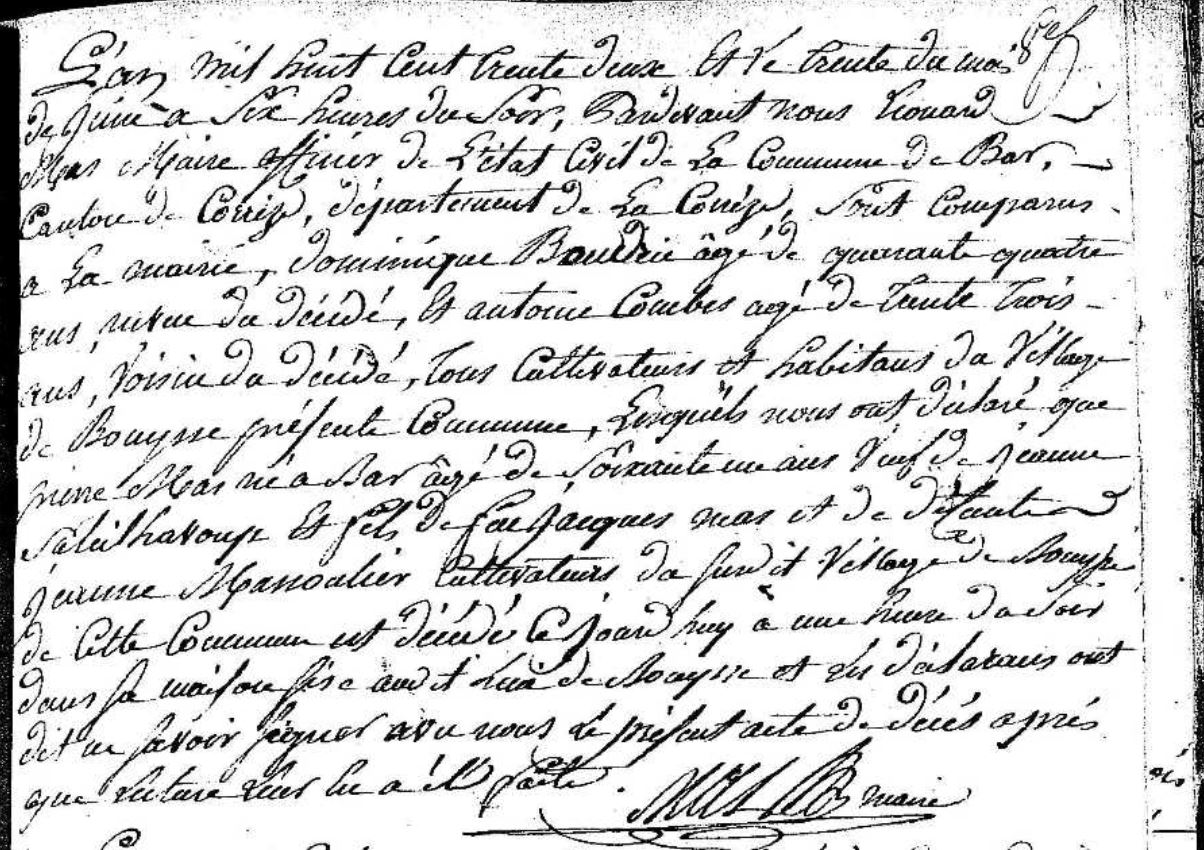 L'an mil huit Cent trente deux Et le trente du mois
de juin à Six heures du Soir, Pardevant nous Léonard
Mas Maire officier de L'état Civil de La Commune de Bar,
Canton de Corrèze, département de La Corrèze, Sont Comparus
a La mairie, dominique âgé de quarante quatre
ans, neveu du décédé, Et antoine Combes agé de trente trois
ans, Voisin du décédé, tous Cultivateurs et habitans du Village
de Bouysse présente Commune, Lesquels nous ont déclaré que
pierre Mas né a Bar âgé de Soixante un ans Veuf de jeanne
Et fils de feu jacques mas et de défunte
jeanne Cultivateurs du susdit Village de Bouysse
de Cette Commune est décédé Ce jourd'huy à une heure du Soir
dans sa maison sise audit Lieu de Bouysse et Les déclarans ont
dit ne savoir signer avec nous Le présent acte de décés après
que Lecture Leur en a été faite.
Mas maire